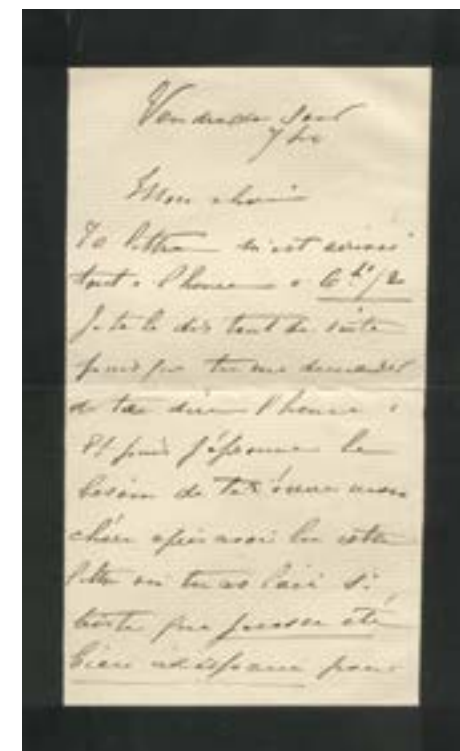 Vendredi soir
7 h
Mon chéri
Ta lettre m'est arrivée
tout à l'heure à 6 h 1/2
Je te le dis tout de suite
puisque tu me demandes
de te dire l'heure
Et puis j'éprouve le
besoin de t'écrire mon
chéri après avoir lu cette
lettre où tu as l'air si
triste que
bien pour